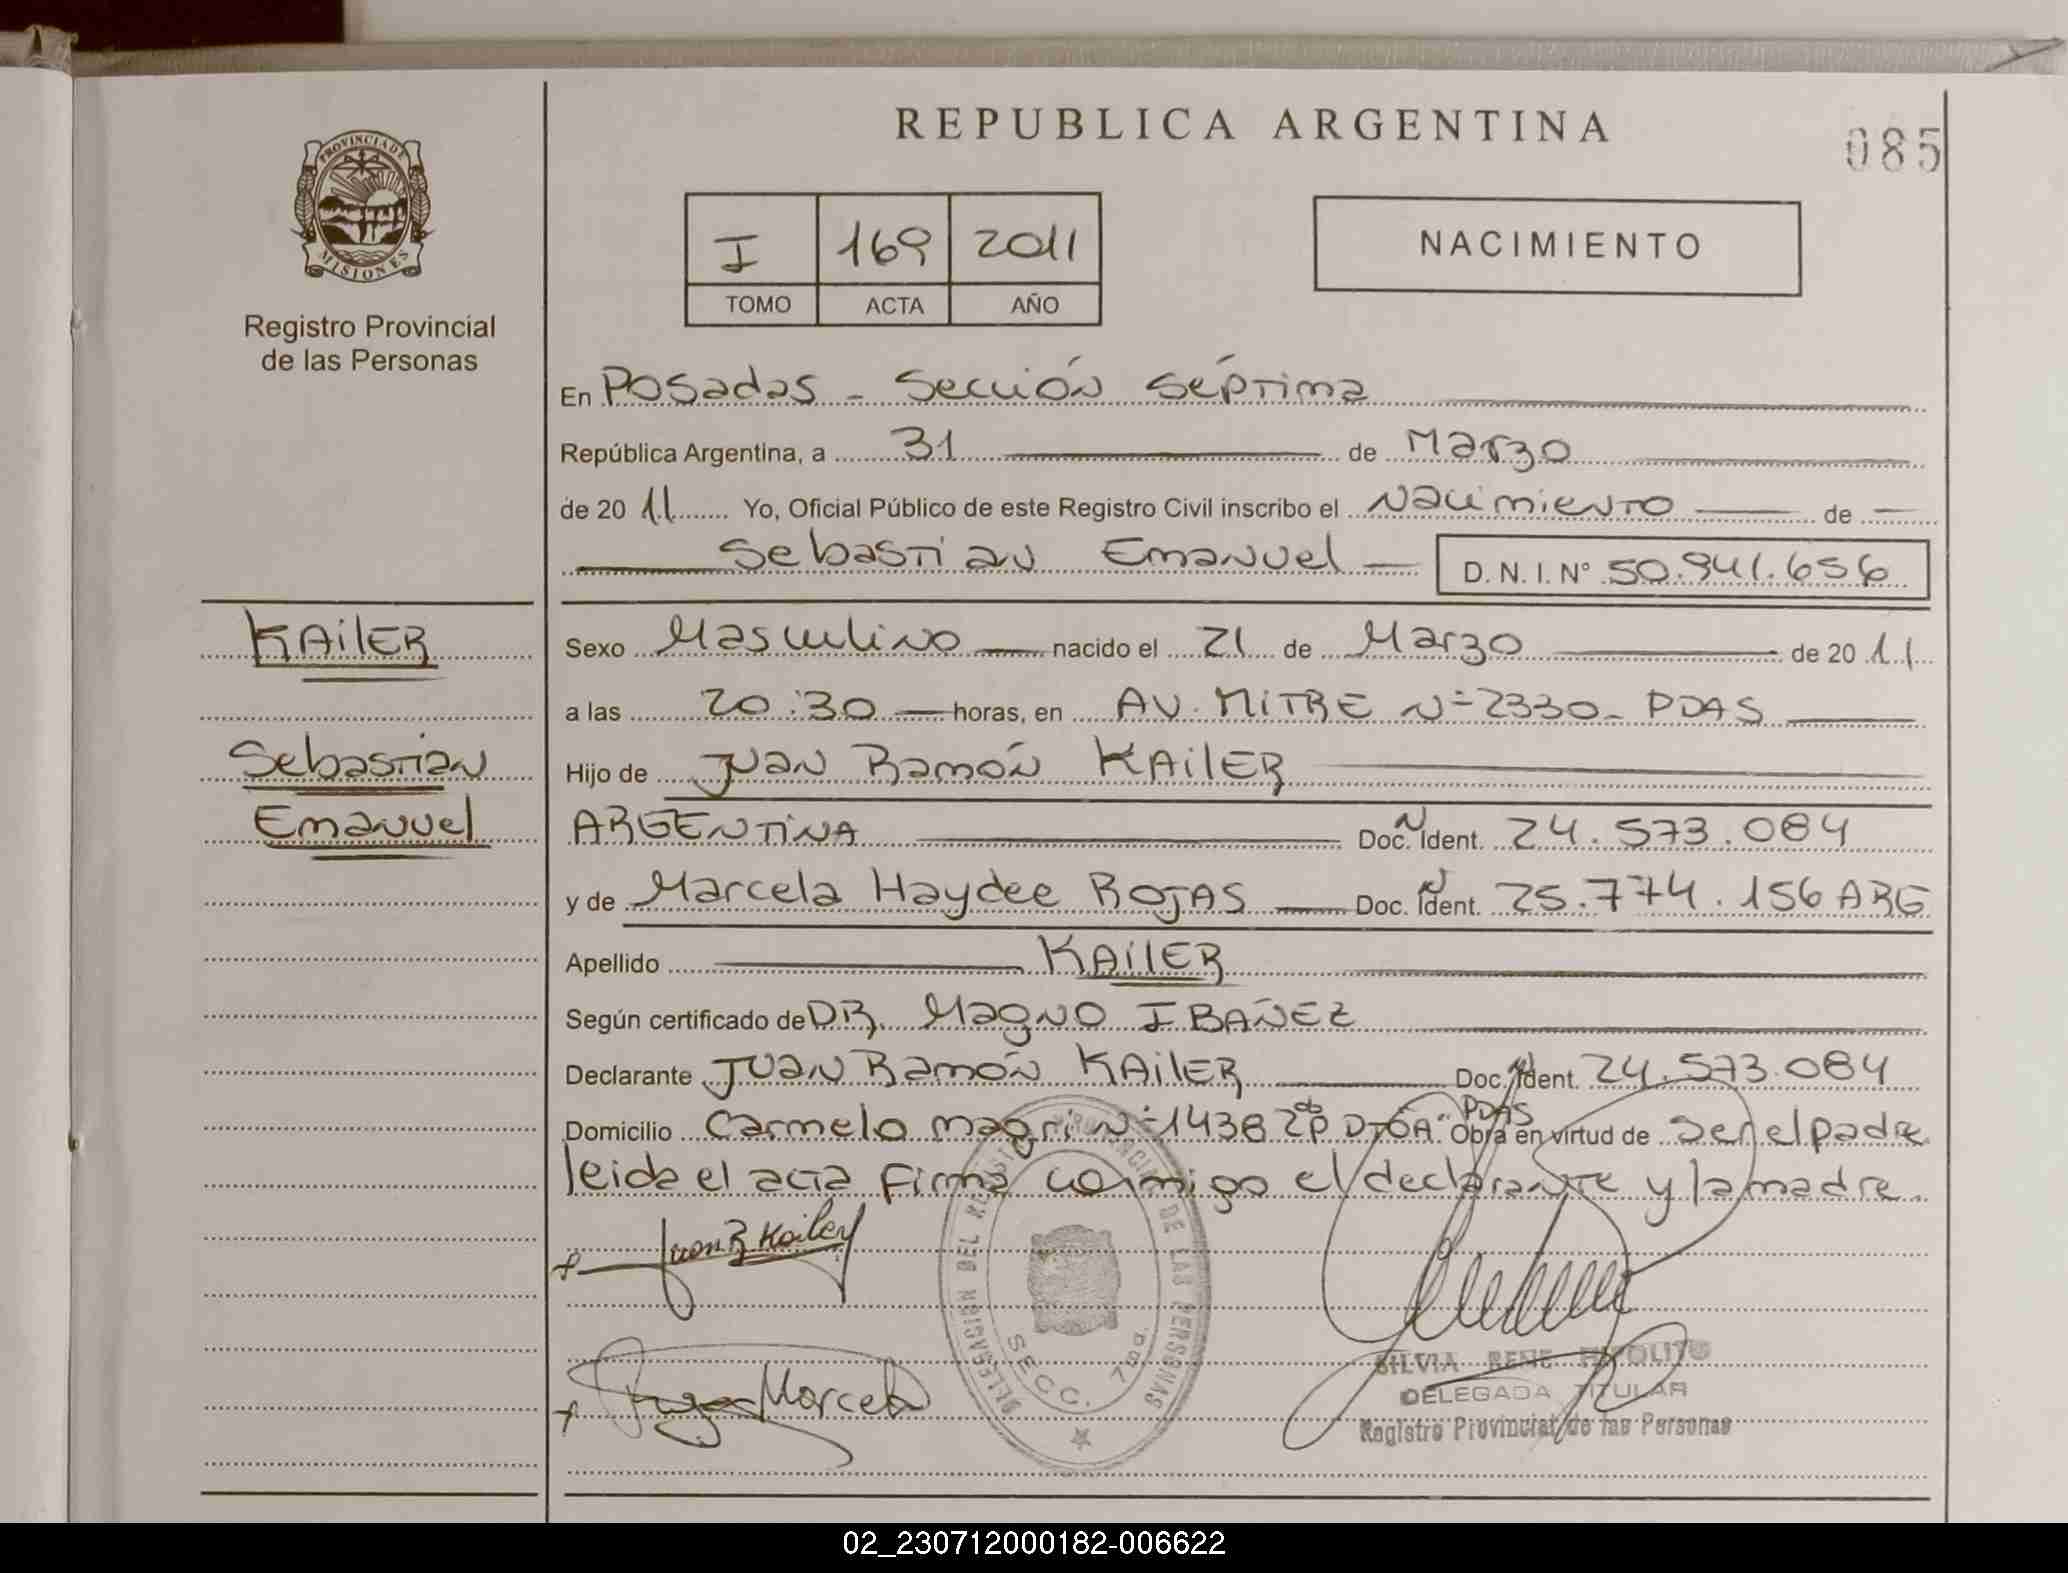 REPUBLICA ARGENTINA
085
PROVINCIA DE
MISIONES
Registro Provincial
de las Personas
I 169 2011
TOMO ACTA AÑO
NACIMIENTO
En Posadas - Sección Séptima
República Argentina, a 31 de Marzo
de 20 11 Yo, Oficial Público de este Registro Civil inscribo el Nacimiento de
Sebastian Emanuel D. N. I. N° 50.941.656
KAILER
Sebastian
Emanuel
Sexo Masculino nacido el 21 de Marzo de 20 11
a las 20:30 horas, en AV. MITRE Nº 2330 - PDAS
Hijo de Juan Ramón KAILER
ARGENTINA Doc. N Ident. 24.573.084
y de Marcela Haydee ROJAS Doc. N Ident. 25.774.156 ARG
Apellido KAILER
Según certificado de DR. Magno IBAÑEZ
Declarante Juan Ramón KAILER Doc. N Ident. 24.573.084
Domicilio Carmelo Magri Nº 1438 2º P DTO "A" PDAS Obra en virtud de ser el padre
leida el acta firma conmigo el declarante y la madre.
Juan R Kailer
Marcela
DELEGACION DEL REGISTRO PROVINCIAL DE LAS PERSONAS
SECC. 7ma.
SILVIA RENE HIPOLITO
DELEGADA TITULAR
Registro Provincial de las Personas
02_230712000182-006622